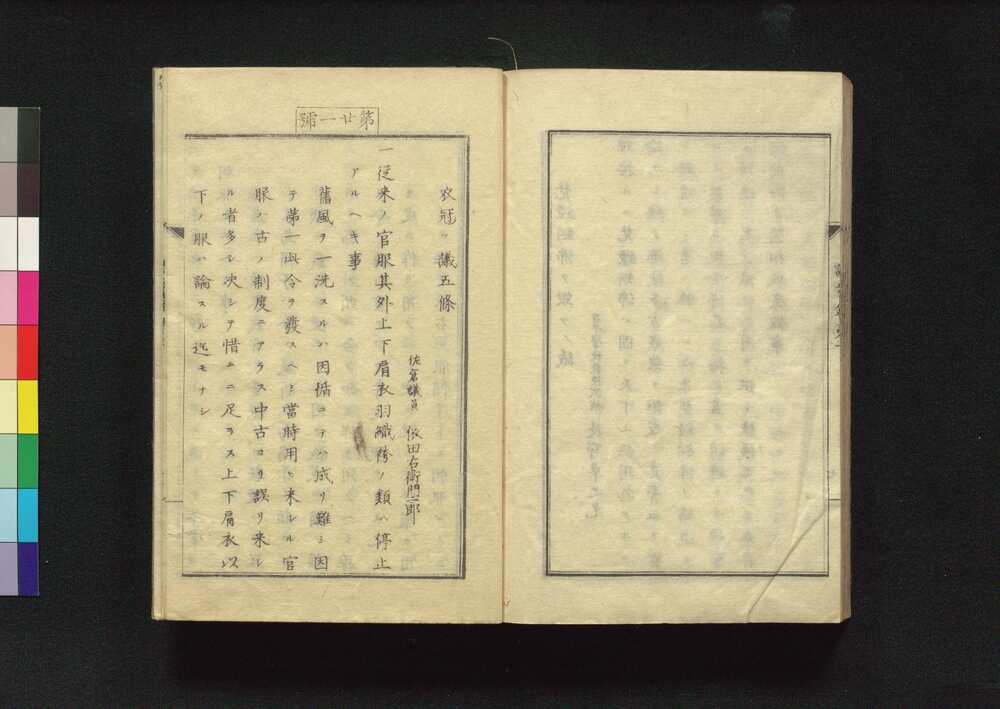 第廿一號
衣冠ノ議五條
佐倉議員 依田右衛門二郎
一從来ノ官服其外上下肩衣羽織袴ノ類ハ停止
アルヘキ事
舊風ヲ一洗スルハ因循コテハ成リ難シ因
テ第一此令ヲ發スヘシ當時用ヒ来レル官
服ノ古ノ制度ニアラス中古ヨリ誤リ来レ
ル者多シ決シテ惜ムニ足ラス上下肩衣以
下ノ服ハ論スル迄モナシ